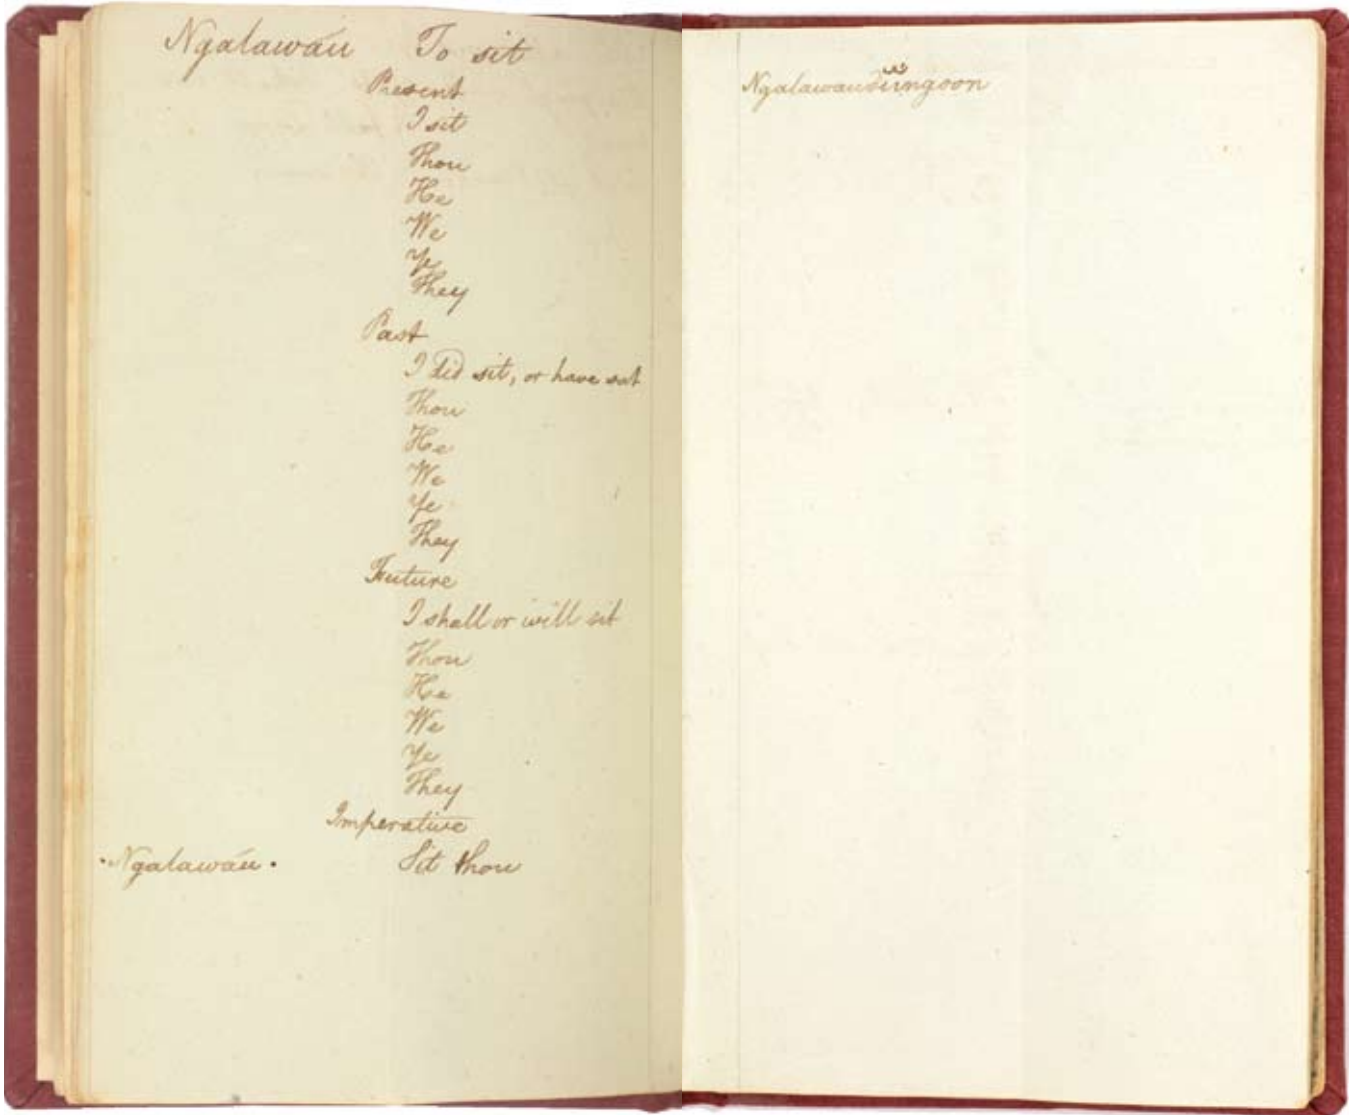 Ngalawáu To sit
Present
I sit
Thou
He
We
Ye
They
Past
I did sit, or have sat
Thou
He
We
Ye
They
Future
I shall or will sit
Thou
He
We
Ye
They
Imperative
·Ngalawáu· Sit thou